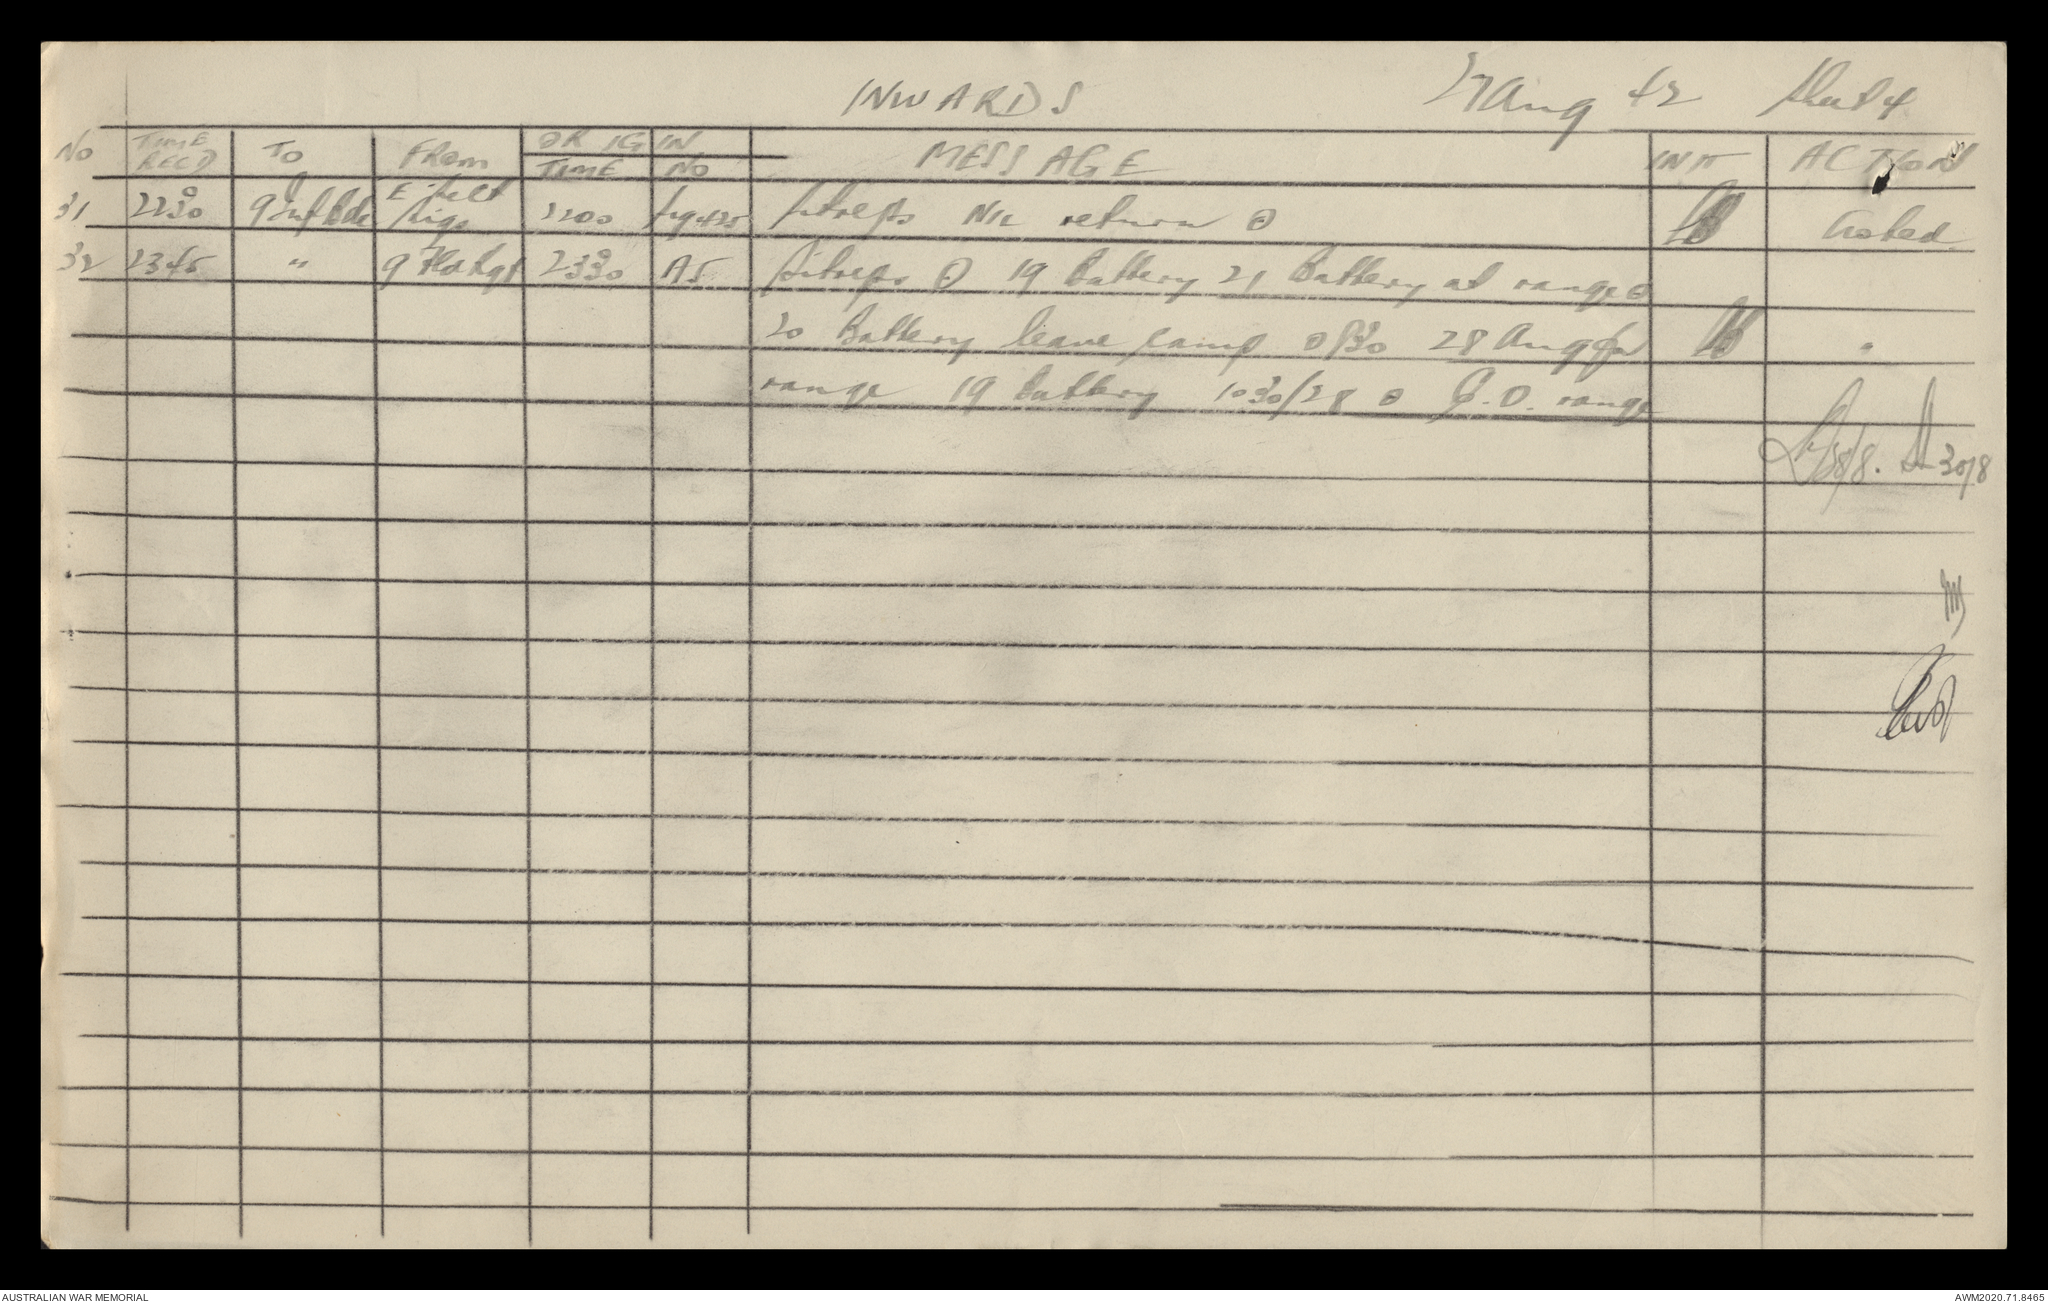 INWARDS 27 Aug 42 Sheet 4
No TIME RECD TO FROM ORIGIN TIME NO MESSAGE INT ACTION
31 2230 9 Inf Bde Sigs 2200 Sitreps NIL return ⊙ Noted
32 2345 " 9 Fld Rgt 2330 A5 Sitreps ⊙ 19 Battery 21 Battery at range ⊙
20 Battery leave camp 0830 28 Aug for "
range 19 Battery 1030/28 ⊙ G.O. range
28/8. 30/8
AUSTRALIAN WAR MEMORIAL AWM2020.71.8465